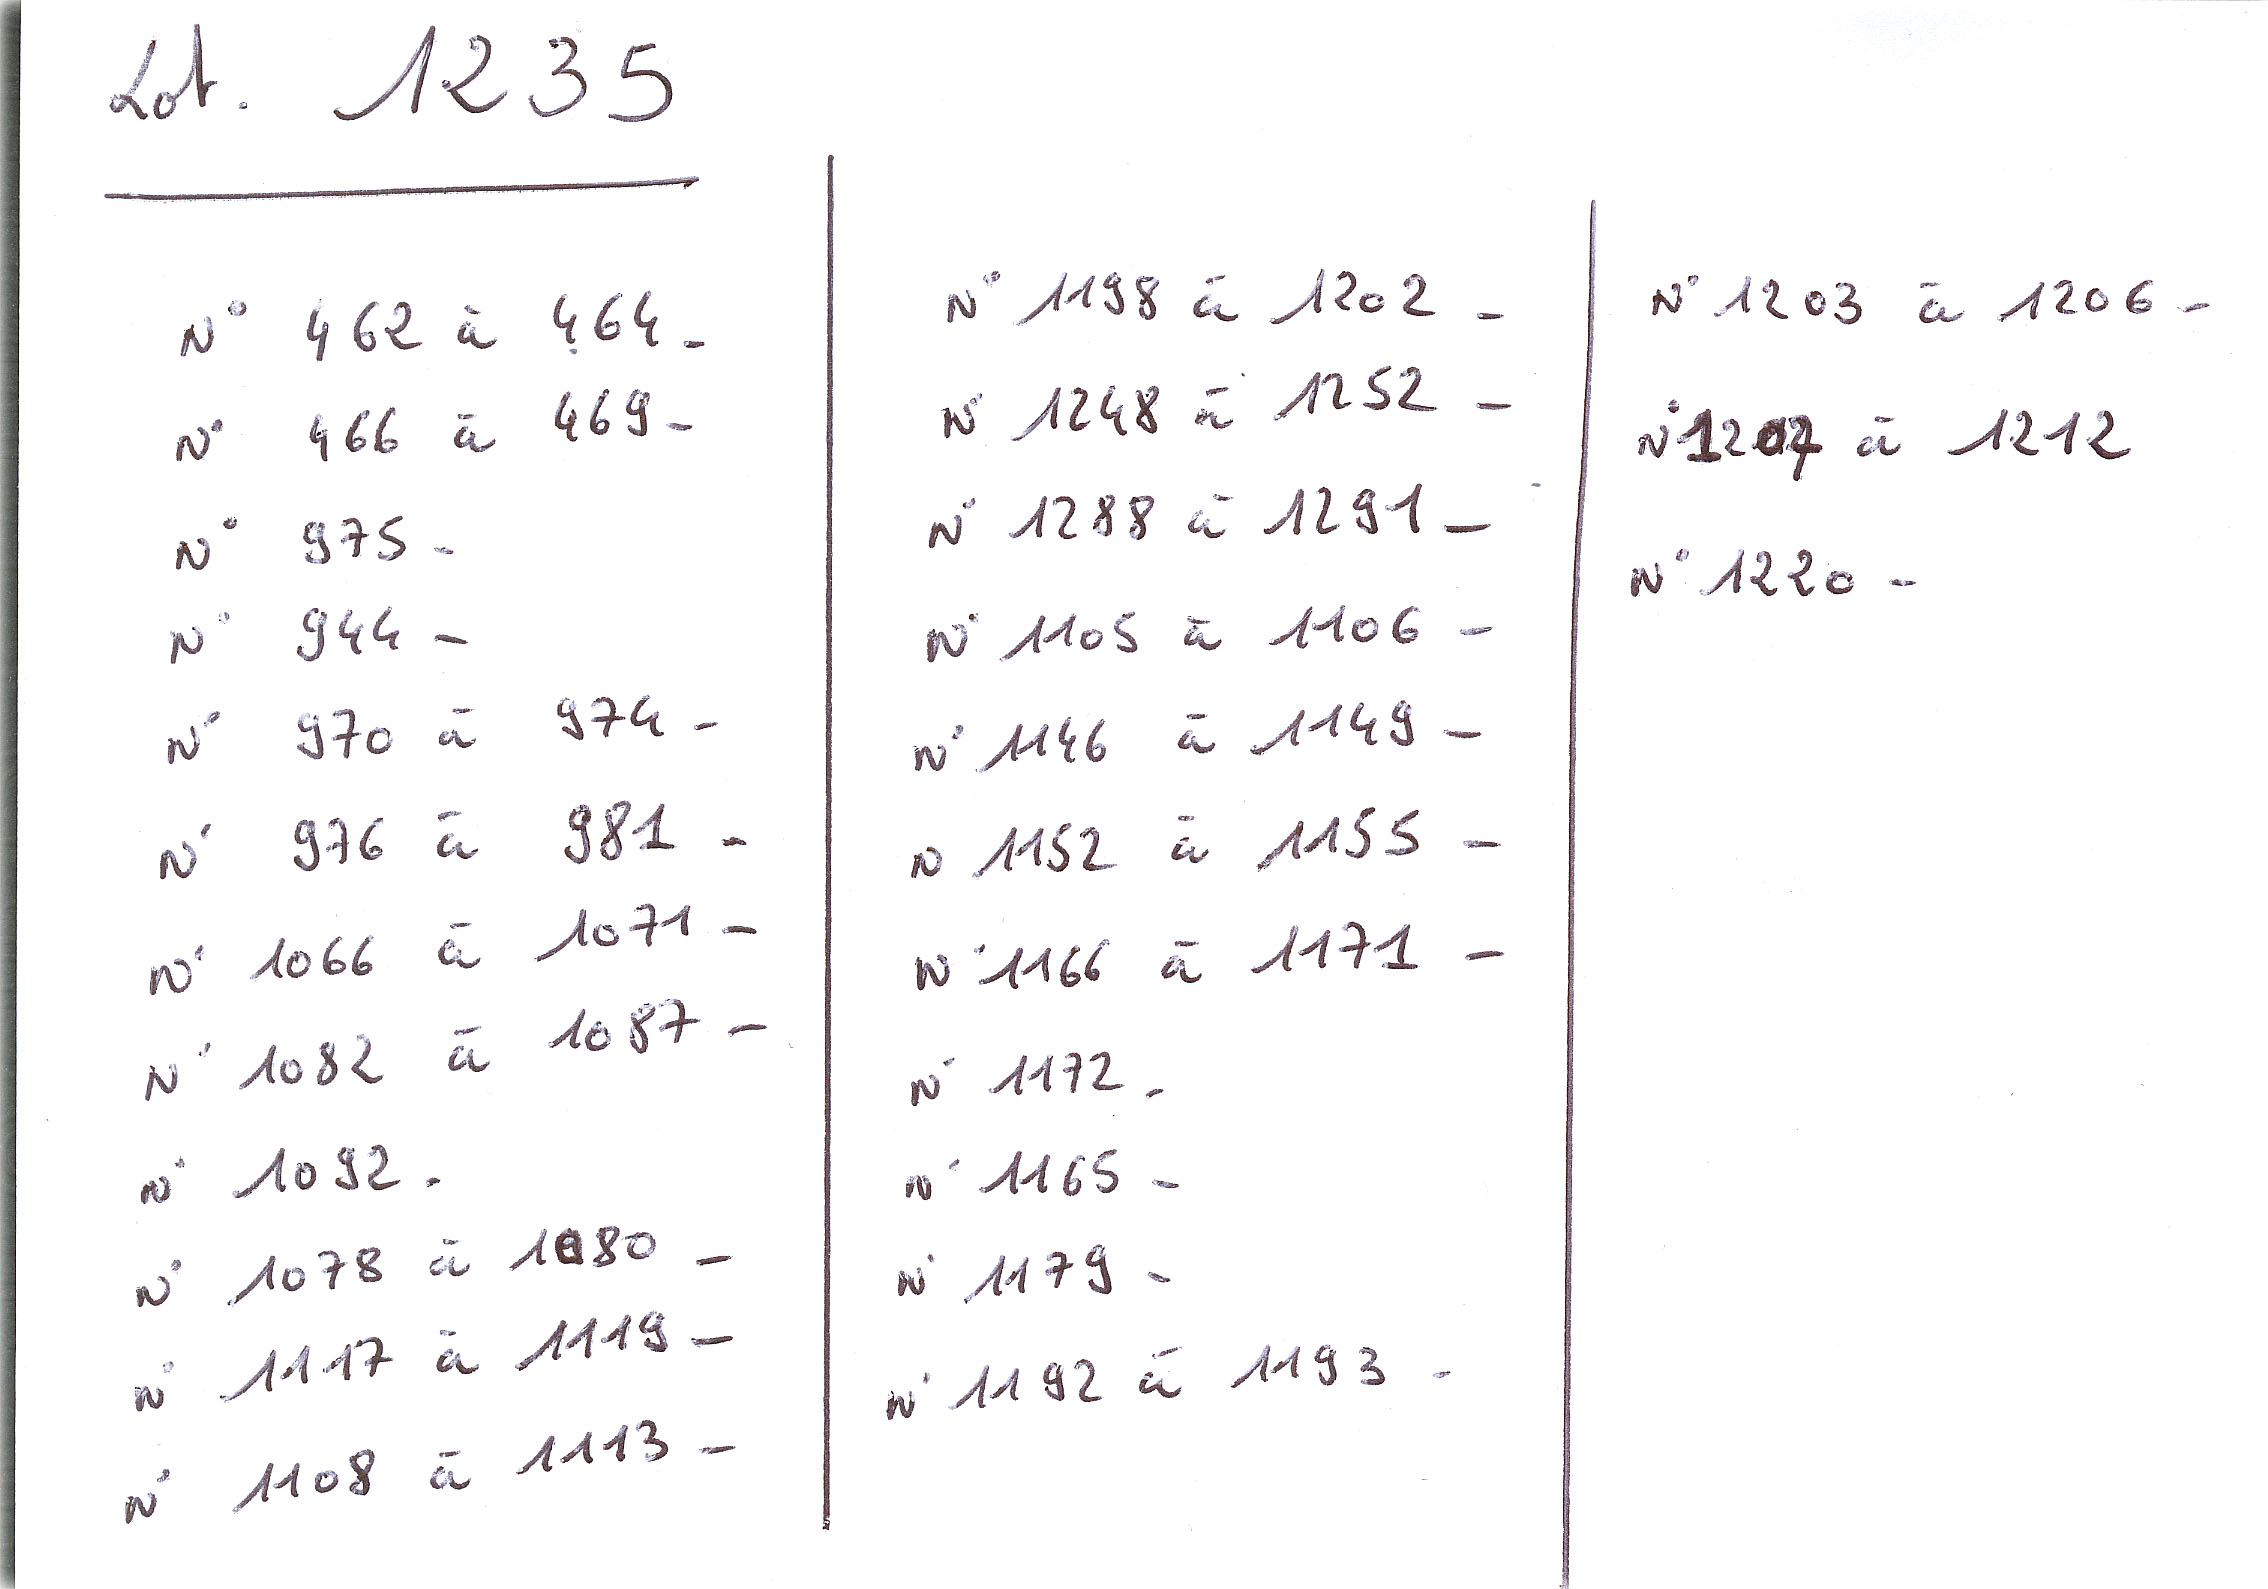 Lot. 1235
N° 462 à 464-
N° 466 à 469-
N° 975-
N° 944-
N° 970 à 974-
N° 976 à 981-
N° 1066 à 1071-
N° 1082 à 1087-
N° 1092-
N° 1078 à 1080-
N° 1117 à 1119-
N° 1108 à 1113-
N° 1198 à 1202-
N° 1248 à 1252-
N° 1288 à 1291-
N° 1105 à 1106-
N° 1146 à 1149-
N 1152 à 1155-
N° 1166 à 1171-
N° 1172-
N° 1165-
N° 1179-
N° 1192 à 1193-
N° 1203 à 1206-
N° 1207 à 1212
N° 1220-